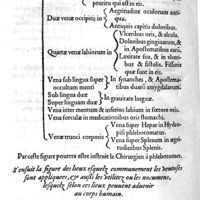 pruritu qui est in eis.
Aegritudine oculorum antiqua.
Duæ venæ occipitis in
Antiquis capitis doloribus.
Vlceribus oris, & alcola.
Doloribus gingiuarum, &
in Apostematibus earū.
Quatuor venæ labiorum in
Laxitate sua, & in vlceribus
& fistulis. Fissuris
quæ sunt in eis.
Vena sub lingua super
occultum menti
In synanches, & Apostematibus
duarū amygdalarum.
Sub lingua duæ
Super linguam duæ
In grauitate linguæ.
Vena inter mentum & inferius labium in fœtore oris.
Vena sursulæ in medicationibus oris stomachi.
Venæ trunci corporis
Vena super Hepar in Hydropisi
phlebotomatur.
Vena super Splenem in ægritudinibus
Splenis.
Par ceste figure pourra estre instruit le Chirurgien à phlebotomer.
S'ensuit la figure des lieux esquelz communement les ventoses
sont appliquees, & aussi les vtilitez ou les nocumens,
lesquelz selon ces lieux peuuent aduenir
au corps humain.